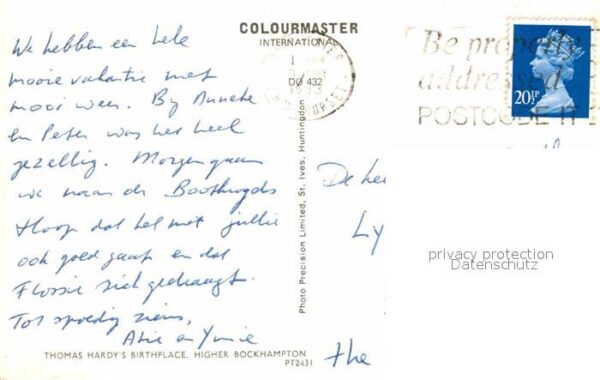 COLOURMASTER
INTERNATIONAL
We hebben een hele
mooie vakantie met
mooi weer. By Anneke
en Peter was het heel
gezellig. Morgen gaan
we naar de
Hoop dat het met jullie
ook goed gaat en dat
Flossie zich gedraagt.
Tot spoedig ziens,
en
THOMAS HARDY'S BIRTHPLACE, HIGHER BOCKHAMPTON
PT2431
Photo Precision Limited, St. Ives, Huntingdon
DO 432
DORSET
Be properly
addressed
POSTCODE IT
20½P
De
Ly
the
privacy protection
Datenschutz